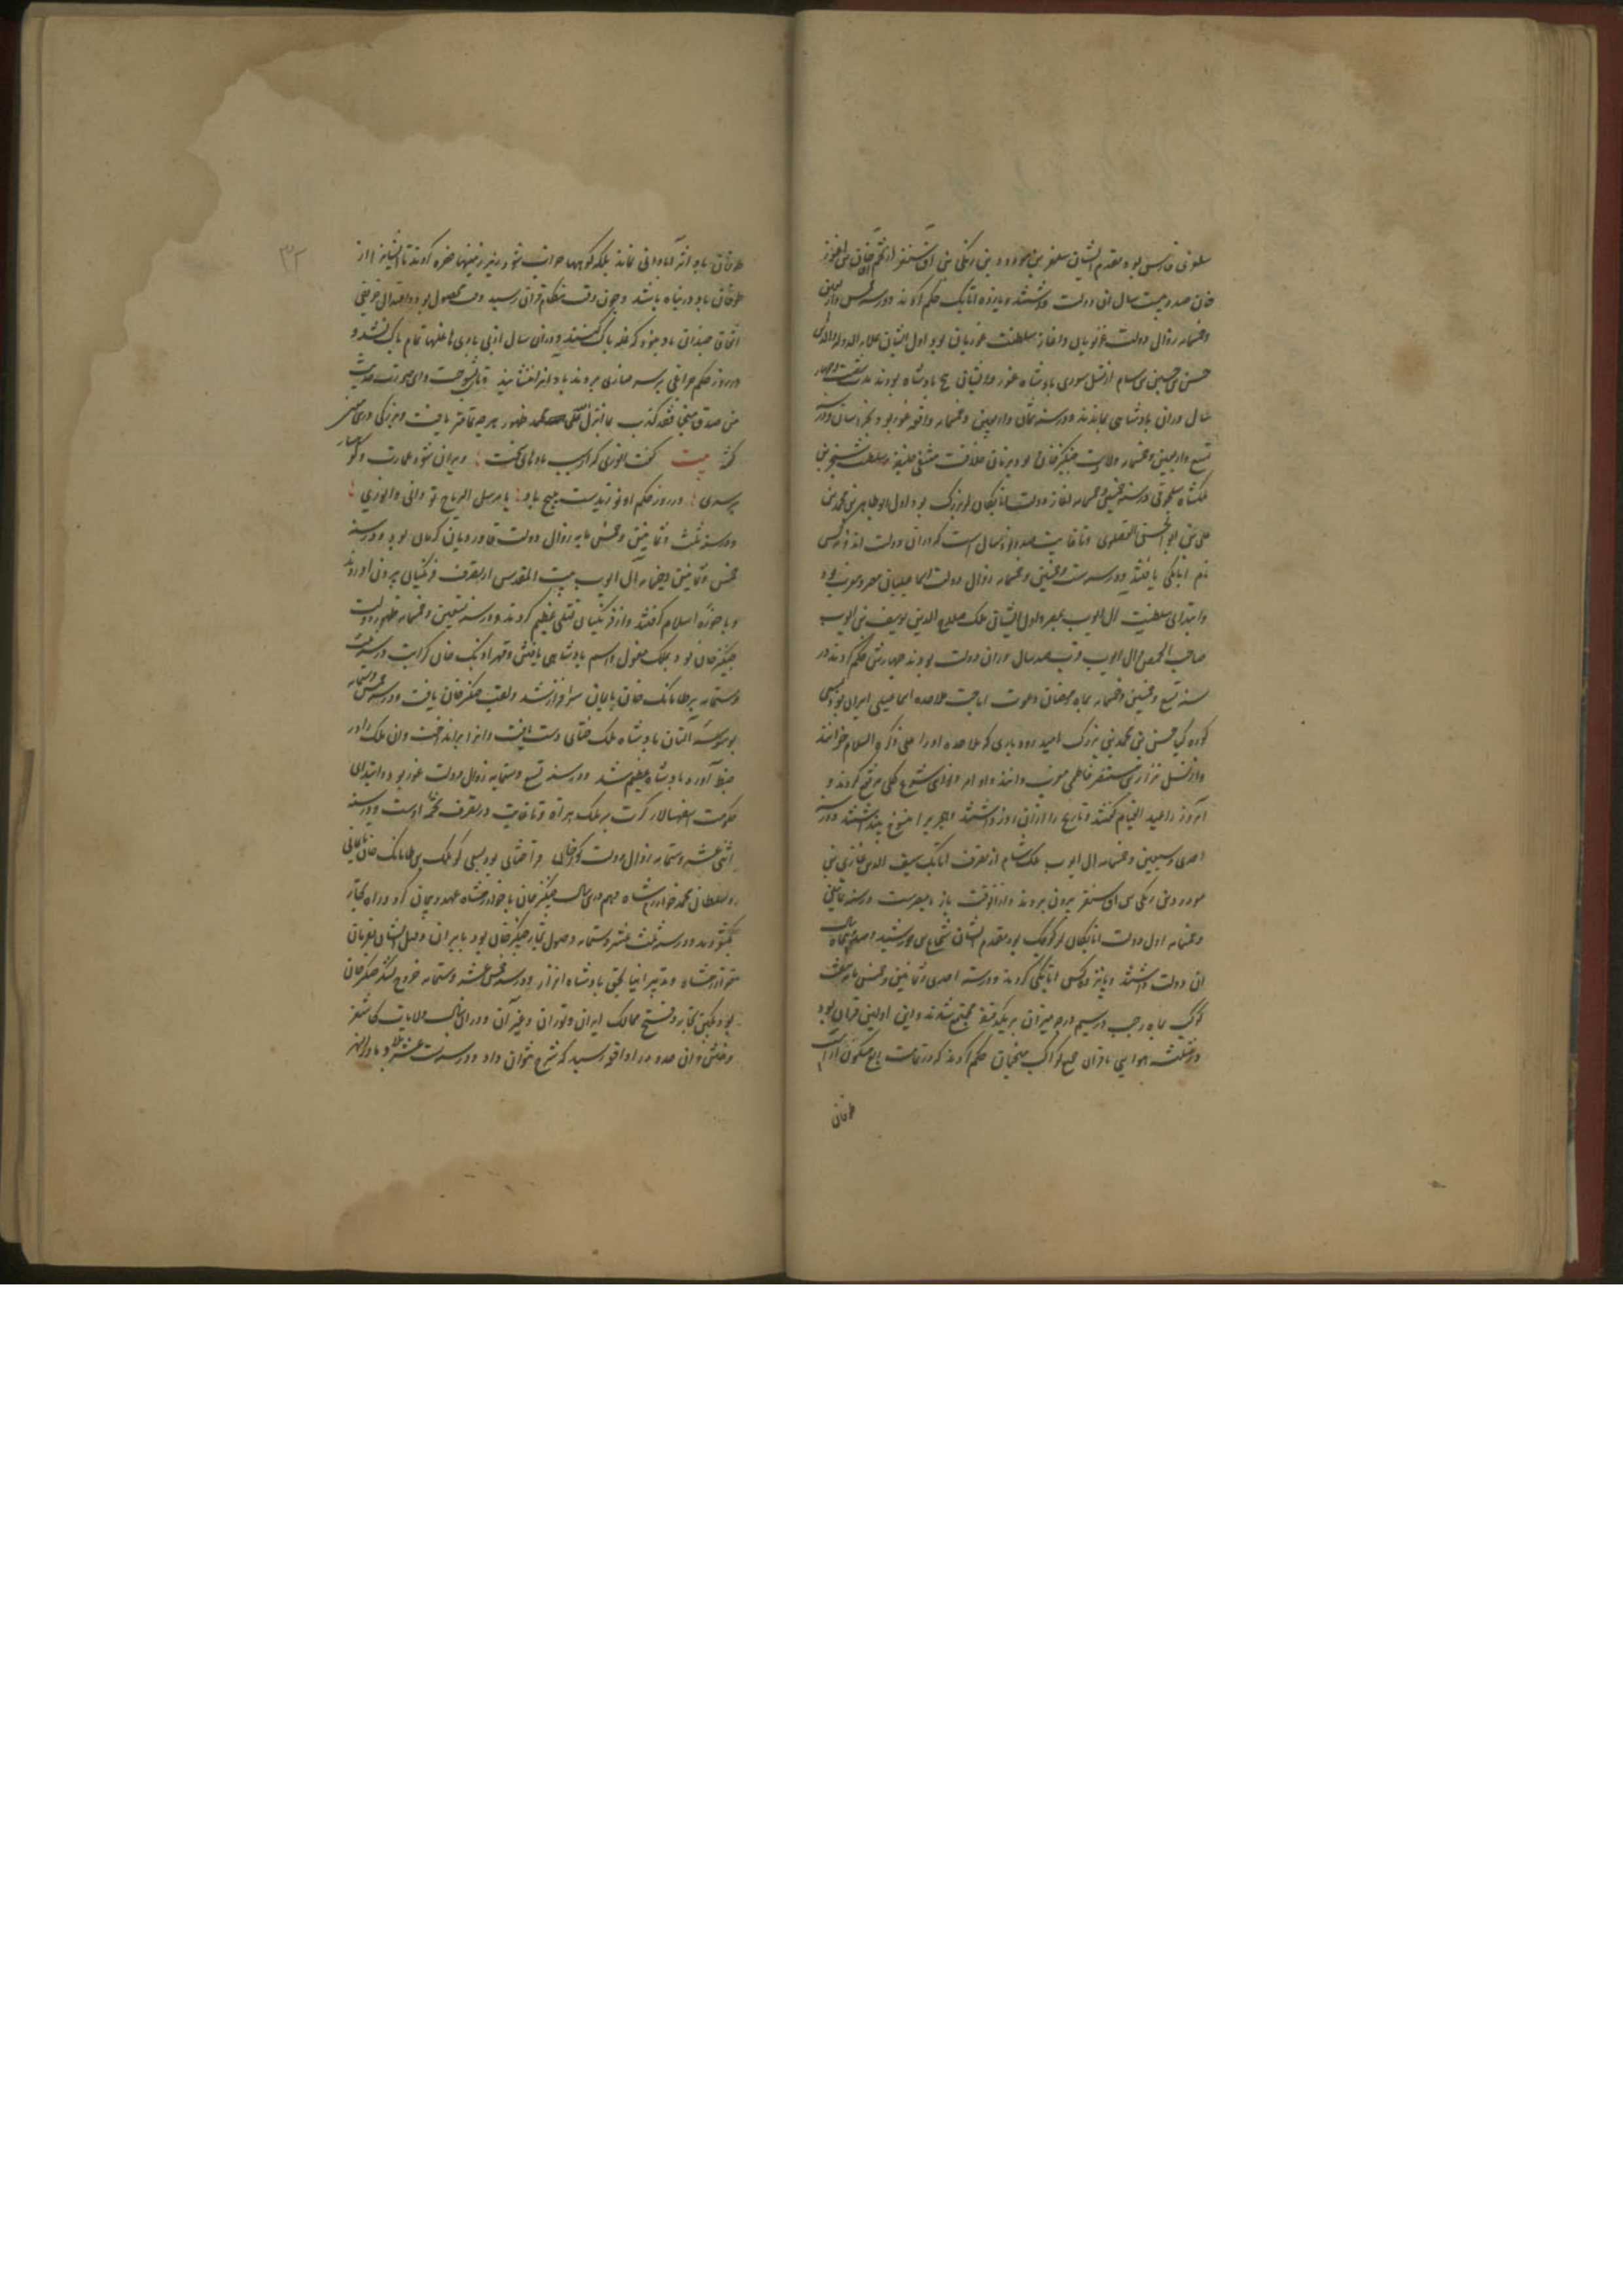 سلغری فارس بود مقدم ایشان سلغر بن مودود بن زنکی بن اق سنقر از تخم خان بن اغوز
خان صد و بیست سال ان دولت داشتند و یازده اتابک حکم کردند و در سنه خمس و اربعین
و خمسمایه زوال دولت غزنویان و اغاز سلطنت غوریان بود اول ایشان علاء الدوله والدین
حسن بن حسین بن سام از نسل سوری پادشاه غور و از ایشان پنج پادشاه بودند مدت شصت و چهار
سال دران پادشاهی بماندند و در سنه ثمان و اربعین و خمسمایه واقعه غز بود بخراسان و در
تسع و اربعین و خمسمایه ولادت چنکیز خان بود بزمان خلافت مقتفی خلیفه و سلطنت سنجر بن
ملکشاه سلجوقی در سنه خمسین و خمسمایه اغاز دولت اتابکان لر بزرک بود اول ابو طاهر بن محمد بن
علی بن ابو الحسن الفضلوی و تا غایت صد و سال است که دران دولت اند و کس
نام اتابکی یافتند و در سنه ست و خمسین و خمسمایه زوال دولت اسماعیلیان مصر و مغرب بود
و ابتدای سلطنت ال ایوب بمصر و اول ایشان ملک صلاح الدین یوسف بن ایوب
صاحب الحمص ال ایوب قرب صد سال دران دولت بودند چهار تن حکم کردند و در
سنه تسع و خمسین و خمسمایه بماه رمضان دعوت اباحت ملاحده اسماعیلی ایران بود بسعی
کوره کیا حسن بن محمد بن بزرک امید رودباری که ملاحده او را علی ذکره السلام خوانند
و از نسل نزار بن مستنصر فاطمی مغرب دانند و اوامر و نواهی شرع کلی مرتفع کردند و
آنروز را عید القیام گفتند و تاریخ را از ان روز داشتند و هجری را منسوخ پنداشتند و در
احدی و سبعین و خمسمایه ال ایوب ملک شام از تصرف اتابک سیف الدین غازی بن
مودود بن زنکی بن اق سنقر بیرون بردند و از انوقت باز با مصرست در سنه ثمانین
و خمسمایه اول دولت اتابکان لر کوچک بود مقدم ایشان شجاع بن خورشید صد و پنجاه سال
ان دولت داشتند و پانزده کس اتابکی کردند و در سنه احدی و ثمانین و خمسمایه هفت
کوکب بماه رجب در سیم درجه میزان بر یکدقیقه مجتمع شدند و این اولین قران بود
در مثلثه هوایی با قران جمع کواکب منجمان حکم کردند که در تمامت ربع مسکون از اسیب
طوفان
۳۲
طوفان باد اثر آبادانی نماند بلکه کوهها خراب شود و زیر زمینها حفره کردند تا ایشانرا از
طوفان باد در پناه باشد و چون وقت حکم قران رسید وقت محصول بود و اعتدال خریفی
اتفاق چندانی باد نبود که غله پاک کنند و دران سال از بی بادی غلها تمام پاک نشد و
در روز حکم چراغی بر سر مناری بردند باد انرا ننشانید و تا بسوخت و این صورت حدیث
من صدق منجما فقد کذب بما انزل علی محمد ظهور هر چه تمامتر یافت و بزرگی درین معنی
گفته بیت گفت انوری که از سبب بادهای سخت ویران شود عمارت و کوهسار
بر سری در روز حکم او نوزیدست هیچ باد یا مرسل الریاح تو دانی و انوری
و در سنه ثلث و ثمانین و خمسمایه زوال دولت قاوردیان کرمان بود و در سنه
خمس و ثمانین و خمسمایه ال ایوب بیت المقدس از تصرف فرنکیان بیرون اوردند
و با حوزه اسلام گرفتند و از فرنکیان قتلی عظیم کردند و در سنه تسعین و خمسمایه ظهور دولت
چنکیز خان بود بملک مغول و اسم پادشاهی یافتن و قهر اونک خان کرایت در سنه ست
و ستمایه بر تایانک خان نایمان سرافراز شد و لقب چنکیز خان یافت و در سنه خمس و ستمایه
بوسوسه التان پادشاه ملک ختای دست یافت و انرا براند اخت و ان ملک را در
ضبط آورده پادشاه عظیم شد و در سنه تسع و ستمایه زوال دولت غور بود و ابتدای
حکومت اسفهسالار کرت بر ملک هراة و تا غایت در تصرف تخمه اوست و در سنه
اثنی عشر و ستمایه زوال دولت کورخان قرا ختای بود بسعی کوچلک بن تایانک خان نایمانی
و سلطان محمد خوارزمشاه و هم درین سال چنکیز خان با خوارزمشاه عهد و پیمان کرد و راه تجار
بگشودند و در سنه ثلث عشر و ستمایه وصول تجار چنکیز خان بود بایران و قتل ایشان بفرمان
خوارزمشاه و تدبیر اینالجق پادشاه اترار و در سنه خمس عشر و ستمایه خروج لشکر چنکیز خان
بود بکین تجار و فتح ممالک ایران و توران و غیر آن و دران سال بولایت کاشغر
و ختن و ان حدود را واقعه رسید که شرح نتوان داد و در سنه ست عشر و ماوراء النهر